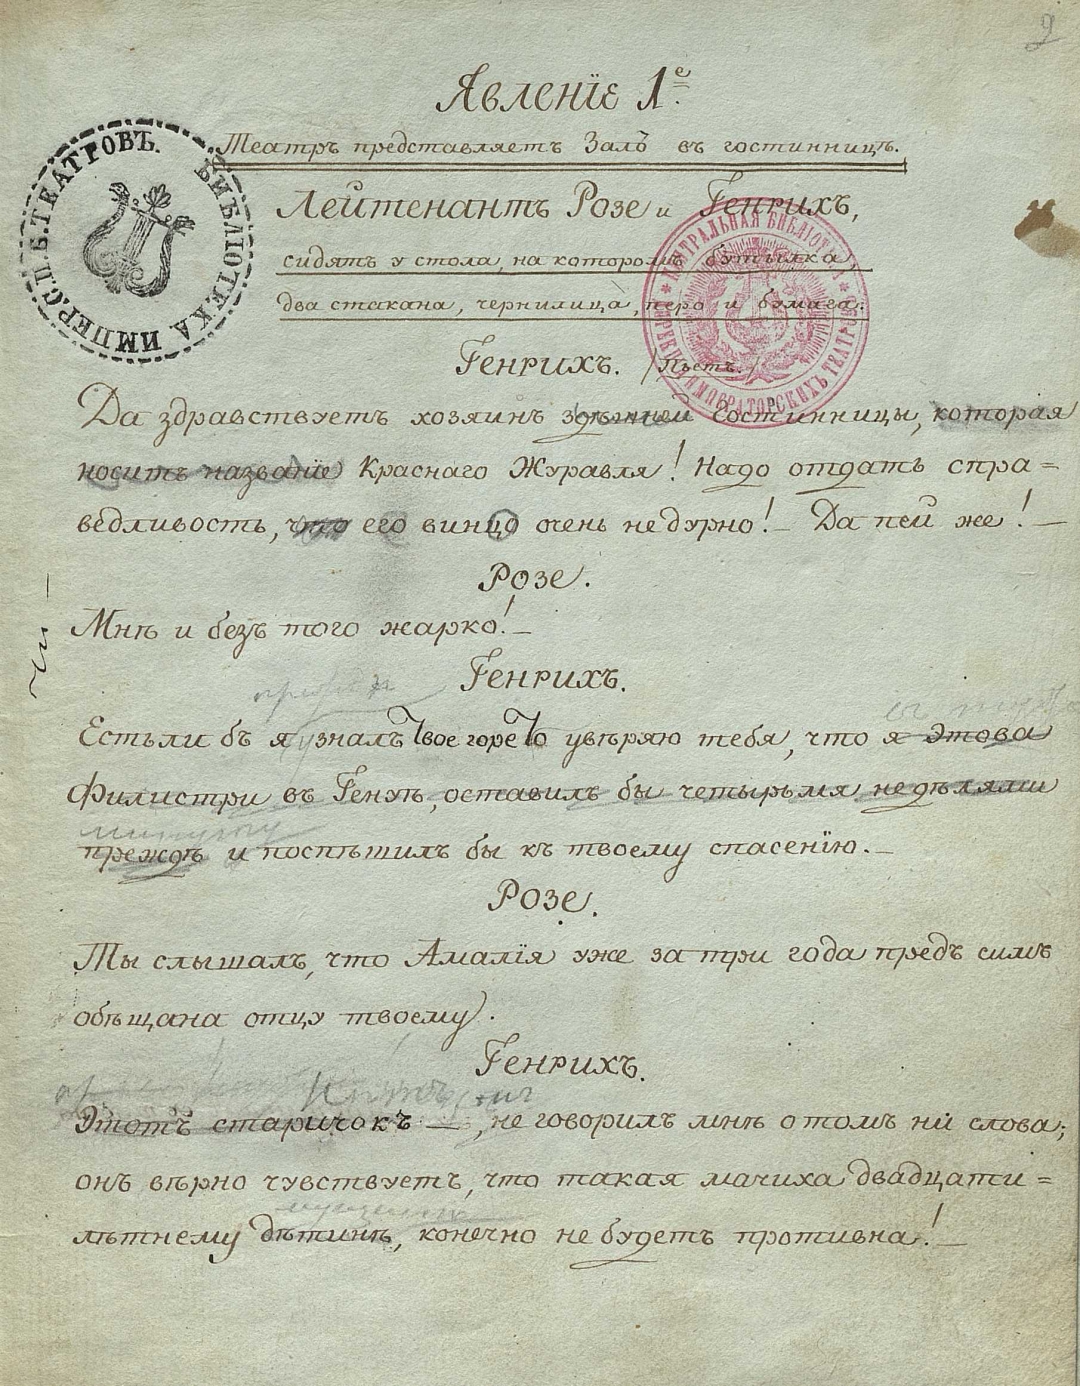 2
Явленіе 1е.
Театръ представляетъ Залъ въ гостинницѣ.
БИБЛІОТЕКА ИМПЕР. С.П.Б. ТЕАТРОВЪ.
Лейтенантъ Розе и Генрихъ,
сидятъ у стола, на которомъ бутылка,
два стакана, чернилица, перо и бумага.
ЦЕНТРАЛЬНАЯ БИБЛІОТЕКА ИМПЕРАТОРСКИХЪ ТЕАТРОВЪ
Генрихъ. /Пьетъ./
Да здравствуетъ хозяинъ здѣшней гостинницы, которая
носитъ названіе Краснаго Журавля! Надо отдать спра=
ведливость, что его винцо очень не дурно! — Да пей же! —
Розе.
Мнѣ и безъ того жарко! —
Генрихъ.
Естьли бъ я узналъ твое горе то увѣряю тебя, что я этова
Филистри въ Генуѣ, оставилъ бы четырьмя недѣлями
минутою
преждѣ и поспѣшилъ бы къ твоему спасенію. —
Розе.
Ты слышалъ, что Амалія уже за три года предъ симъ
обѣщана отцу твоему.
Генрихъ.
Этотъ старичокъ —, не говорилъ мнѣ о томъ ни слова;
онъ вѣрно чувствуетъ, что такая мачиха двадцати=
лѣтнему дѣтинѣ, конечно не будетъ противна! —